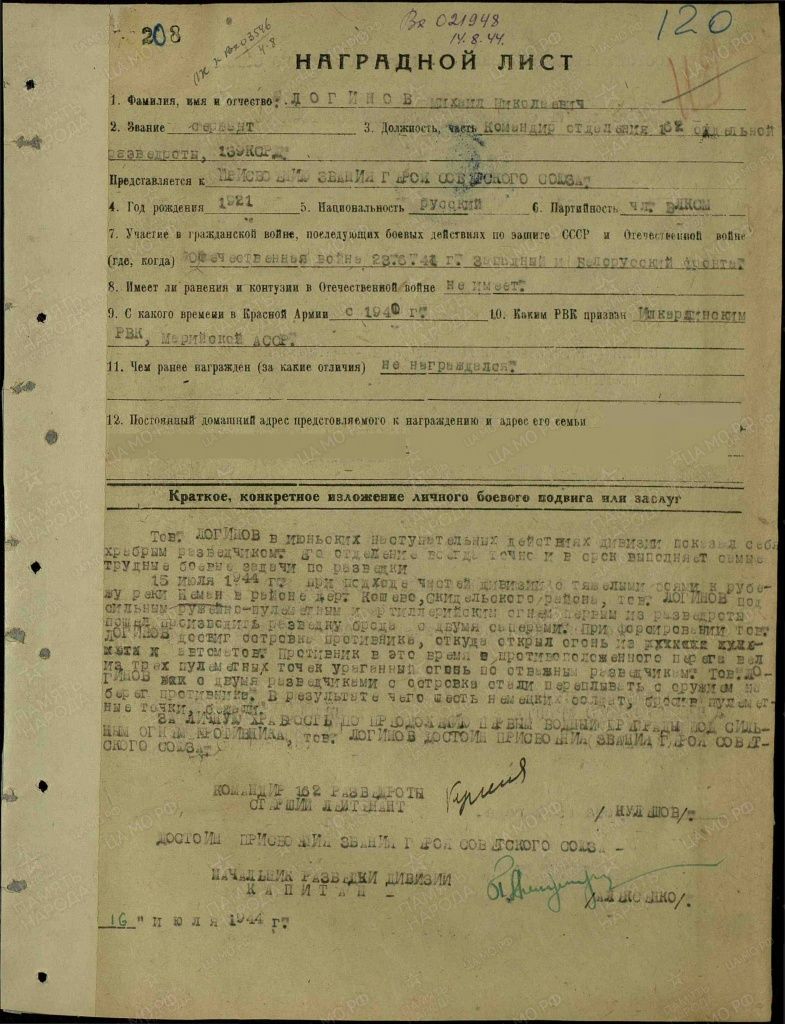 208
Вх 021948
14.8.44.
120
НАГРАДНОЙ ЛИСТ
1. Фамилия, имя и отчество: ЛОГИНОВ Михаил Николаевич
2. Звание сержант 3. Должность, часть Командир отделения 162 отдельной
разведроты,
Представляется к ПРИСВОЕНИЮ ЗВАНИЯ ГЕРОЯ СОВЕТСКОГО СОЮЗА.
4. Год рождения 1921 5. Национальность русский 6. Партийность чл. ВЛКСМ
7. Участие в гражданской войне, последующих боевых действиях по защите СССР и Отечественной войне
(где, когда) Отечественная война Западный и Белорусский фронта.
8. Имеет ли ранения и контузии в Отечественной войне не имеет.
9. С какого времени в Красной Армии с 1940 г. 10. Каким РВК призван
РВК, Марийской АССР.
11. Чем ранее награжден (за какие отличия) не награждался.
12. Постоянный домашний адрес предстовляемого к награждению и адрес его семьи
Краткое, конкретное изложение личного боевого подвига или заслуг
Тов. ЛОГИНОВ в июньских наступательных действиях дивизии показал себя
храбрым разведчиком. Его отделение всегда точно и в срок выполняет самые
трудные боевые задачи по разведки
15 июля 1944 г. при подходе частей дивизии с тяжелыми боями к рубе-
жу реки Неман в районе дер. Кошево, Скидельского района, тов. ЛОГИНОВ под
сильным ружейно-пулеметным и артиллерийским огнем первым из разведроты
пошел производить разведку брода с двумя саперами. При форсировании тов.
ЛОГИНОВ достиг островка противника, откуда открыл огонь из
и автоматов. Противник в это время с противоположенного берега вел
из трех пулеметных точек ураганный огонь по отважным разведчикам. Тов. ЛО-
ГИНОВ с двумя разведчиками с островка стали переплывать с оружием на
берег противника. В результате чего шесть немецких солдат, бросив пулемет-
ные точки, бежали.
ЗА ЛИЧНУЮ ХРАБРОСТЬ, ПО ПРЕОДОЛЕНИЮ ПЕРВЫМ ВОДНЫЙ ПРЕГРАДЫ ПОД СИЛЬ-
НЫМ ОГНЕМ ПРОТИВНИКА, тов. ЛОГИНОВ ДОСТОИН ПРИСВОЕНИЯ ЗВАНИЯ ГЕРОЯ СОВЕТ-
СКОГО СОЮЗА.
КОМАНДИР 162 РАЗВЕДРОТЫ
СТАРШИЙ ЛЕЙТЕНАНТ
/КУЛЕШОВ/.
ДОСТОИН ПРИСВОЕНИЯ ЗВАНИЯ ГЕРОЯ СОВЕТСКОГО СОЮЗА -
НАЧАЛЬНИК РАЗВЕДКИ ДИВИЗИИ
КАПИТАН -
16 " июля 1944 г.